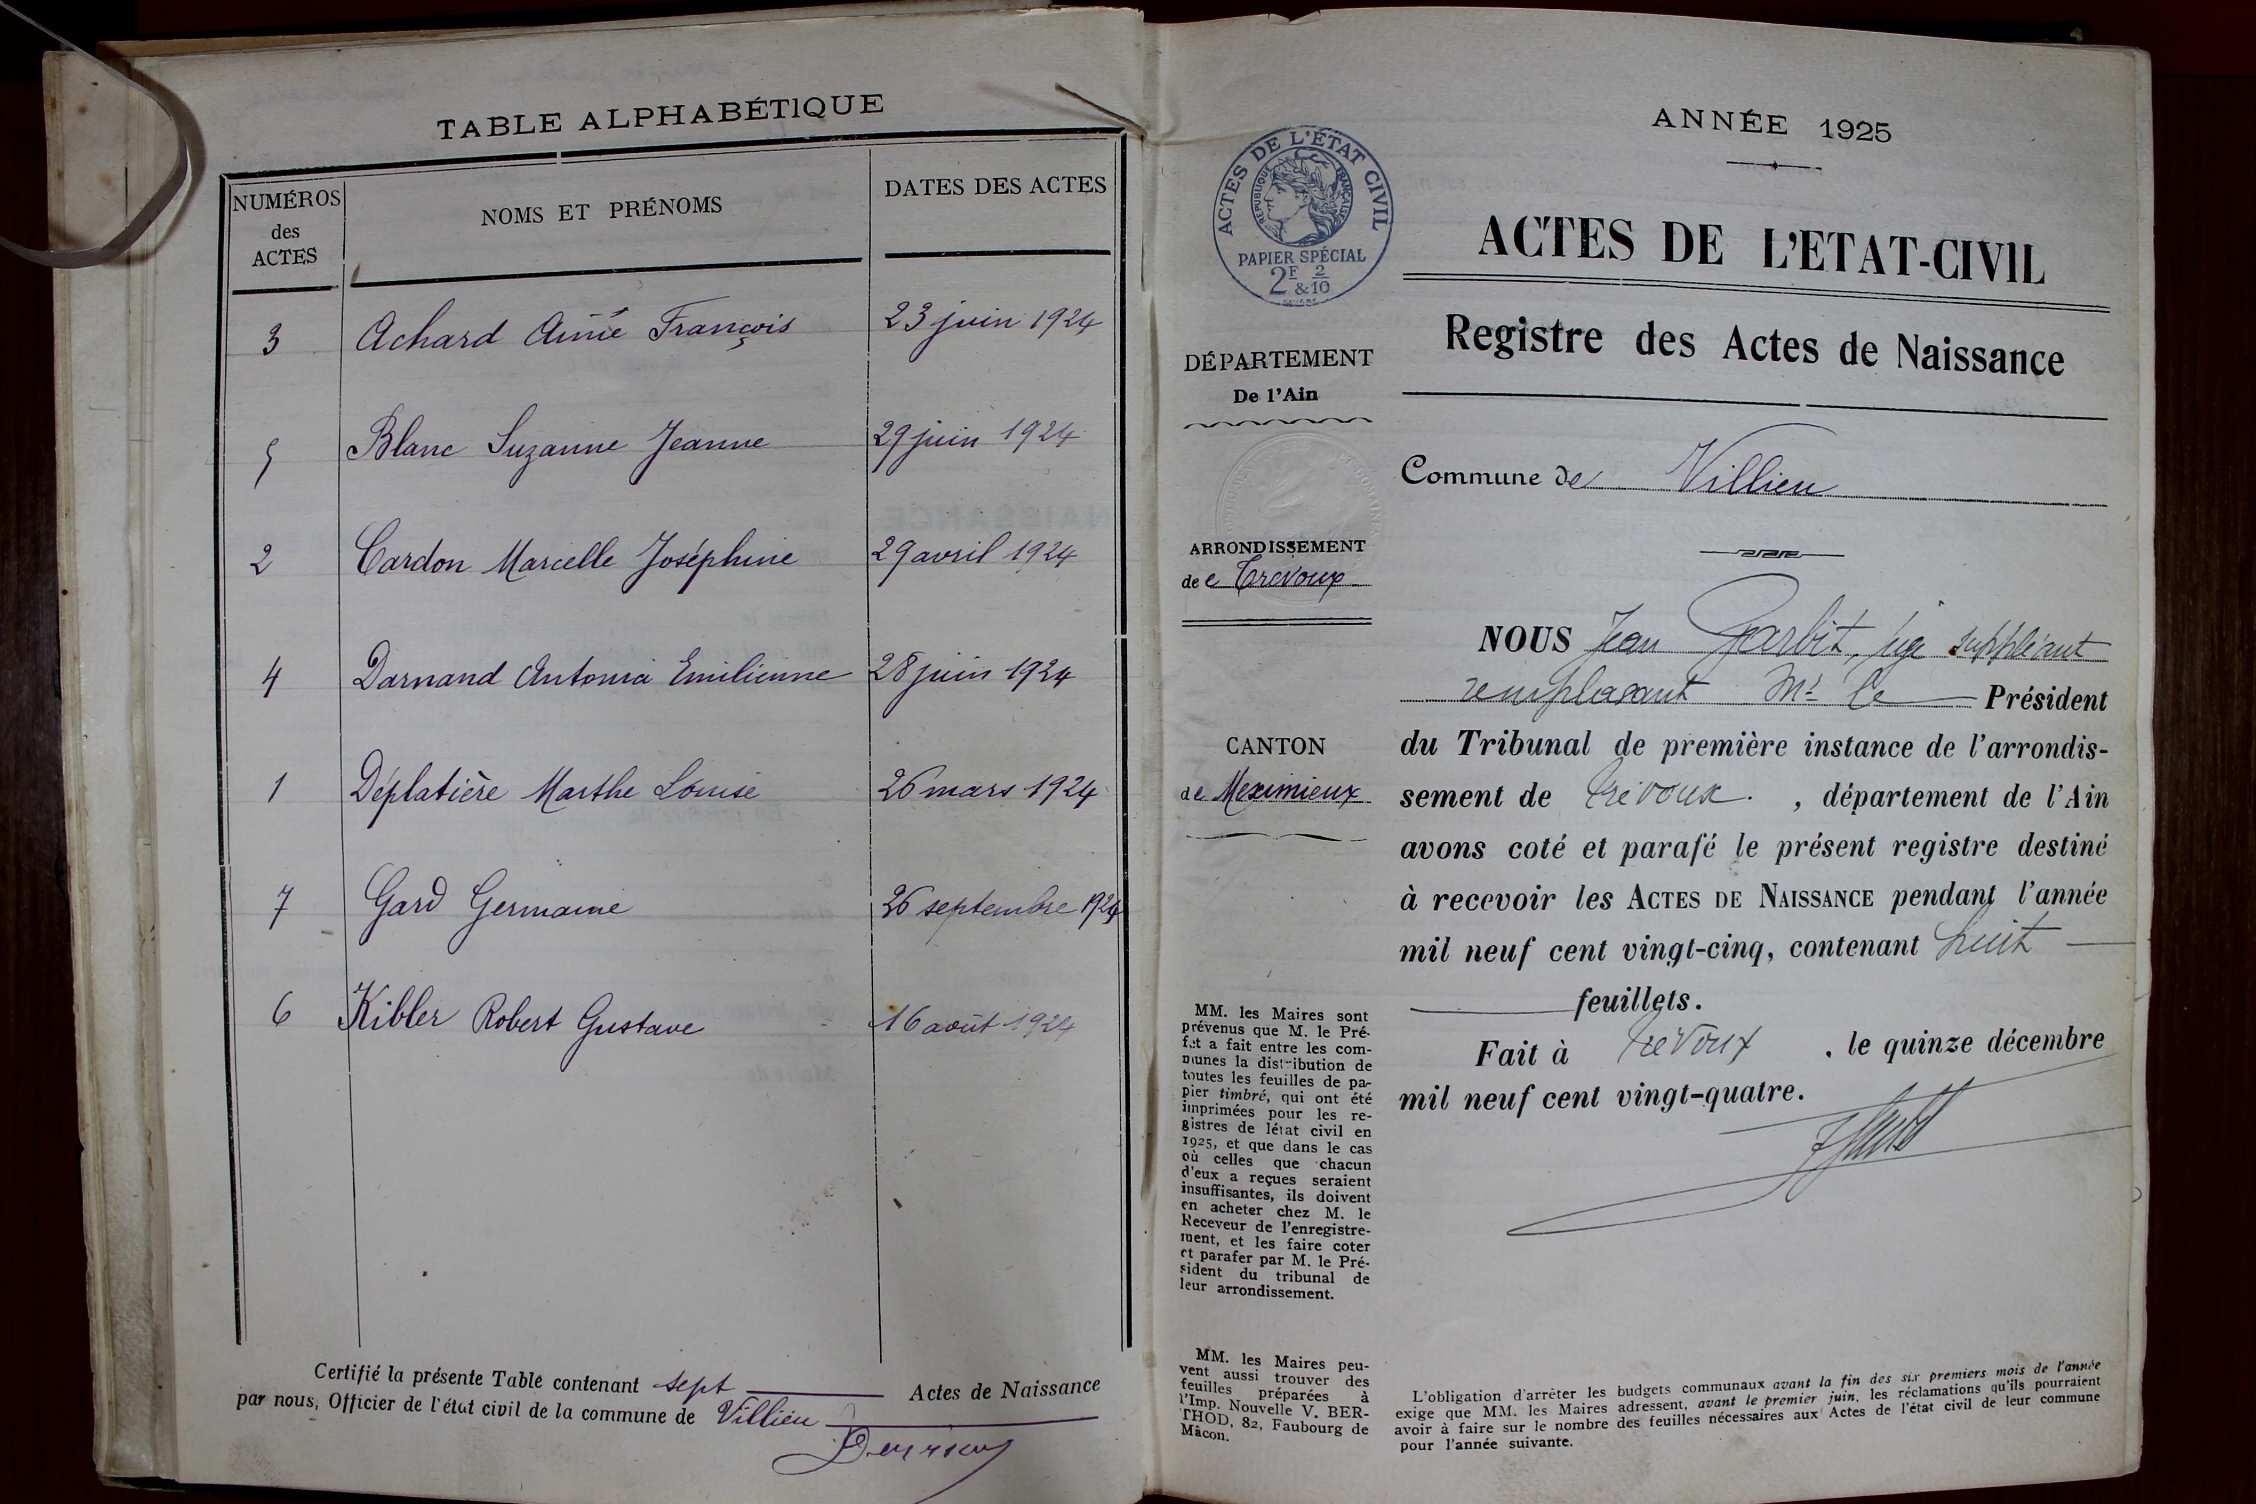 TABLE ALPHABÉTIQUE
NUMÉROS des ACTES
NOMS ET PRÉNOMS
DATES DES ACTES
3 Achard Aimé François 23 juin 1924
5 Blanc Suzanne Jeanne 29 juin 1924
2 Cardon Marcelle Joséphine 29 avril 1924
4 Darnand Antonia Emilienne 28 juin 1924
1 Déplatière Marthe Louise 26 mars 1924
7 Gard Germaine 26 septembre 1924
6 Kibler Robert Gustave 16 août 1924
Certifié la présente Table contenant sept Actes de Naissance
par nous, Officier de l'état civil de la commune de Villieu
ACTES DE L'ÉTAT CIVIL
RÉPUBLIQUE FRANÇAISE
PAPIER SPÉCIAL
2F & 2/10
DÉPARTEMENT
De l'Ain
ARRONDISSEMENT
de Trévoux
CANTON
de Meximieux
MM. les Maires sont
prévenus que M. le Pré-
fet a fait entre les com-
munes la distribution de
toutes les feuilles de pa-
pier timbré, qui ont été
imprimées pour les re-
gistres de létat civil en
1925, et que dans le cas
où celles que chacun
d'eux a reçues seraient
insuffisantes, ils doivent
en acheter chez M. le
Receveur de l'enregistre-
ment, et les faire coter
et parafer par M. le Pré-
sident du tribunal de
leur arrondissement.
MM. les Maires peu-
vent aussi trouver des
feuilles préparées à
l'Imp. Nouvelle V. BER-
THOD, 82, Faubourg de
Mâcon.
ANNÉE 1925
ACTES DE L'ETAT-CIVIL
Registre des Actes de Naissance
Commune de Villieu
NOUS Jean Garbit, juge suppléant
remplaçant Mr le Président
du Tribunal de première instance de l'arrondis-
sement de Trévoux , département de l'Ain
avons coté et parafé le présent registre destiné
à recevoir les ACTES DE NAISSANCE pendant l'année
mil neuf cent vingt-cinq, contenant huit
feuillets.
Fait à Trévoux , le quinze décembre
mil neuf cent vingt-quatre.
L'obligation d'arrêter les budgets communaux avant la fin des six premiers mois de l'année
exige que MM. les Maires adressent, avant le premier juin, les réclamations qu'ils pourraient
avoir à faire sur le nombre des feuilles nécessaires aux Actes de l'état civil de leur commune
pour l'année suivante.